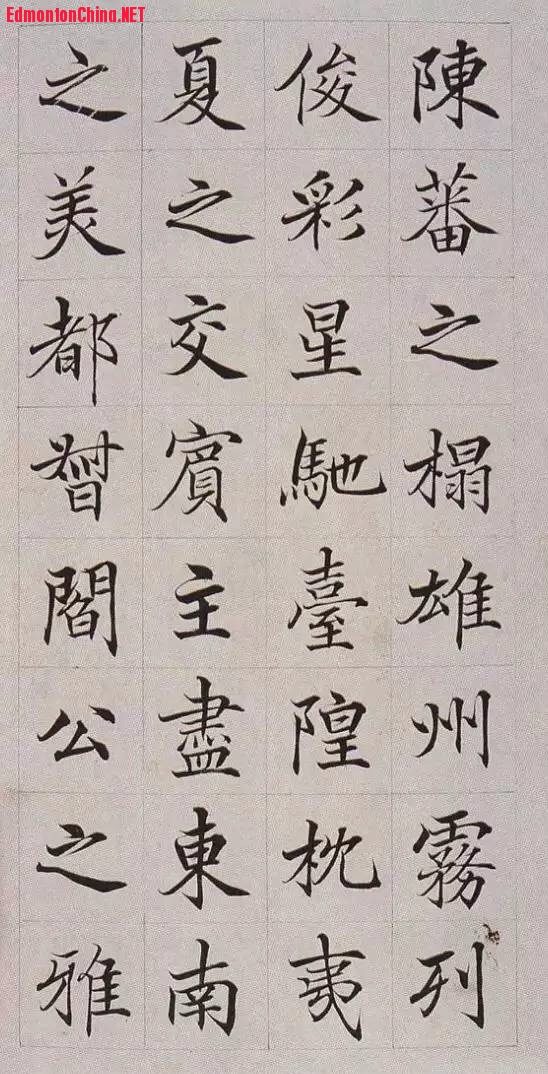 EdmontonChina.NET
陳蕃之榻雄州霧列
俊彩星馳臺隍枕夷
夏之交賓主盡東南
之美都督閻公之雅